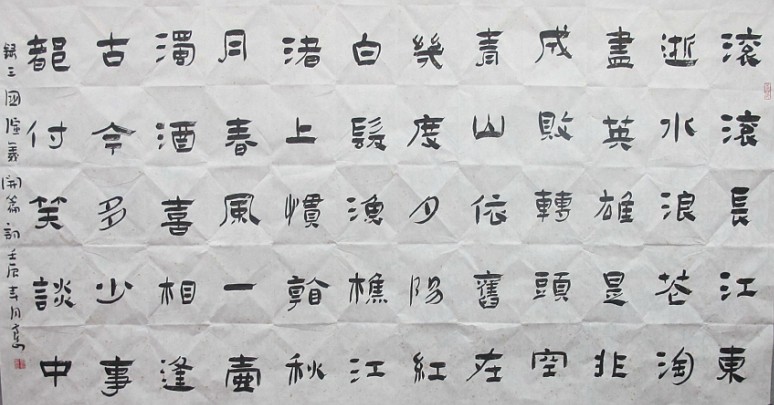 滾滾長江東
逝水浪花淘
盡英雄是非
成敗轉頭空
青山依舊在
幾度夕陽紅
白髮漁樵江
渚上慣看秋
月春風一壺
濁酒喜相逢
古今多少事
都付笑談中
錄三國演義開篇詞壬辰